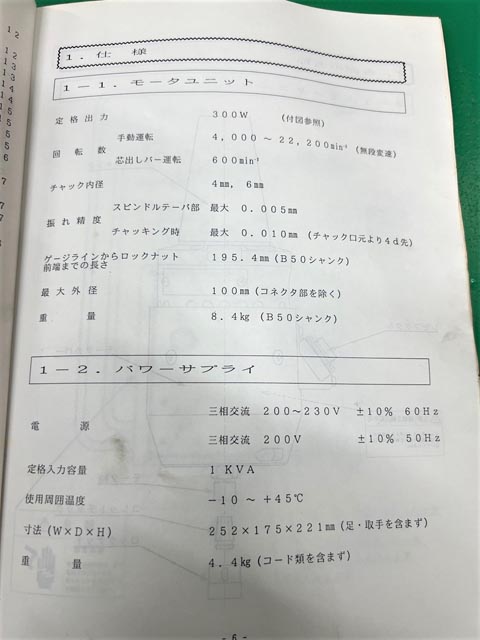 1．仕　様
1－1．モータユニット
定格出力　300W　(付図参照)
回転数　手動運転　4,000～22,200min⁻¹ (無段変速)
芯出しバー運転　600min⁻¹
チャック内径　4mm, 6mm
振れ精度　スピンドルテーパ部　最大 0.005mm
チャッキング時　最大 0.010mm (チャック口元より4d先)
ゲージラインからロックナット　195.4mm (B50シャンク)
前端までの長さ
最大外径　100mm (コネクタ部を除く)
重　量　8.4kg (B50シャンク)
1－2．パワーサプライ
電　源　三相交流 200～230V ±10% 60Hz
三相交流 200V ±10% 50Hz
定格入力容量　1 KVA
使用周囲温度　－10～＋45℃
寸法 (W×D×H)　252×175×221mm (足・取手を含まず)
重　量　4.4kg (コード類を含まず)
- 6 -